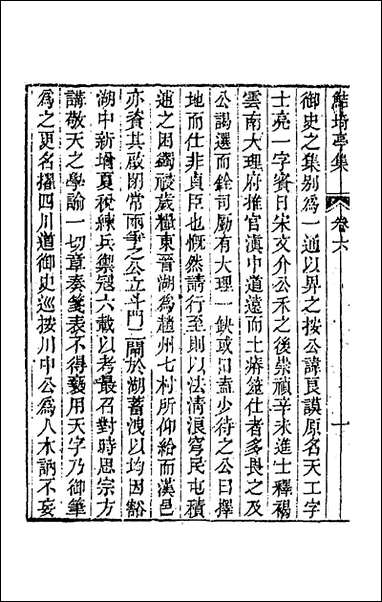 鮚埼亭集 卷六 十
御史之集别爲一通以畀之按公諱良謨原名天工字
士亮一字賓日宋文介公禾之後崇禎辛未進士釋褐
雲南大理府推官滇中道遠而土瘠筮仕者多畏之及
公謁選而銓司勵有大理一缺或曰盍少待之公曰擇
地而仕非貞臣也慨然請行至則以法清浪穹民屯積
逋之困鐲祲歲糧東晉湖爲趙州七村所仰給而漢邑
亦資其啟閉常兩爭之公立斗門二閘於湖蓄洩以均因豁
湖中新增夏稅練兵禦寇六載以考最召對時思宗方
講敬天之學諭一切章奏箋表不得褻用天字乃御筆
爲之更名擢四川道御史巡按川中公爲人木訥不妄